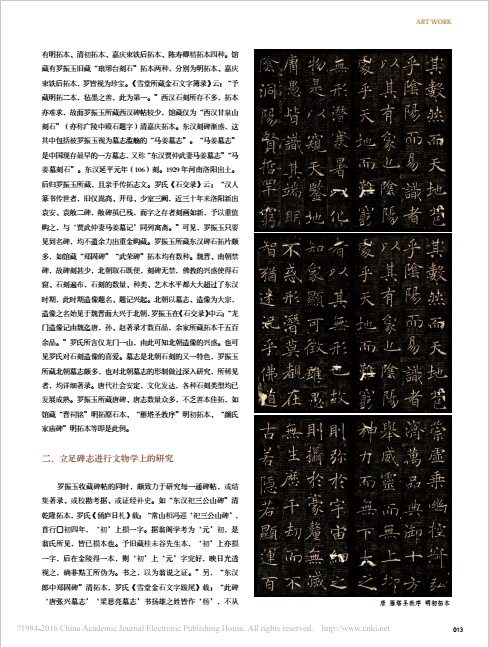 ART WORK
有明拓本、清初拓本、嘉庆束铁后拓本、陈寿卿精拓本四种。馆
藏有罗振玉旧藏“琅琊台刻石”拓本两种，分别为明拓本、嘉庆
束铁后拓本，罗皆视为珍宝。《雪堂所藏金石文字簿录》云：“予
藏明拓二本，毡墨之善，此为第一。”西汉石刻所存不多，拓本
亦难求，故而罗振玉所藏西汉碑帖较少，馆藏仅为“西汉甘泉山
刻石”（亦称广陵中殿石题字）清嘉庆拓本。东汉刻碑渐盛，这
其中包括被罗振玉视为墓志滥觞的“马姜墓志”。“马姜墓志”
是中国现存最早的一方墓志，又称“东汉贾仲武妻马姜墓志”“马
姜墓刻石”。东汉延平元年（106）刻。1929年河南洛阳出土。
后归罗振玉所藏，且亲手传拓志文。罗氏《石交录》云：“汉人
篆书传世者，旧仅嵩高、开母、少室三阙，近三十年来洛阳新出
袁安、袁敞二碑，敞碑虽已残，而字之存者刻画如新，予以重值
购之，与‘贾武仲妻马姜墓记’同列寓斋。”可见，罗振玉只要
见到名碑，均不遗余力出重金购藏。罗振玉所藏东汉碑石拓片颇
多，如馆藏“郑固碑”“武荣碑”拓本均有数种。魏晋、南朝禁
碑，故碑刻甚少，北朝取石既便，刻碑无禁，佛教的兴盛使得石
窟、石刻遍布，石刻的数量、种类、艺术水平都大大超过了东汉
时期，此时期造像题名、题记兴起。北朝以墓志、造像为大宗，
造像之名始见于魏晋而大兴于北朝，罗振玉在《石交录》中云：“龙
门造像记由魏迄唐，孙、赵著录才数百品，余家所藏拓本千五百
余品。”罗氏所言仅龙门一山，由此可知北朝造像的兴盛。也可
见罗氏对石刻造像的喜爱。墓志是北朝石刻的又一特色，罗振玉
所藏北朝墓志颇多，也对北朝墓志的形制做过深入研究，所稀见
者，均详细著录。唐代社会安定，文化发达，各种石刻类型均已
发展成熟。罗振玉所藏唐碑、唐志数量众多，不乏善本佳拓，如
馆藏“晋祠铭”明拓原石本、“雁塔圣教序”明初拓本、“颜氏
家庙碑”明拓本等即是此例。
二、立足碑志进行文物学上的研究
罗振玉收藏碑帖的同时，颇致力于研究每一通碑帖，或结
集著录、或校勘考据、或证经补史。如“东汉祀三公山碑”清
乾隆拓本，罗氏《俑庐日札》载：“常山相冯巡‘祀三公山碑’，
首行囗初四年，‘初’上损一字。据翁阁学考为‘元’初，是
翁氏所见，皆已损本也。予旧藏桂未谷先生本，‘初’上亦损
一字，后在金陵得一本，则‘初’上‘元’字完好，映日光透
视之，确非黏工所伪为。书之，以为翁说之证。”另，“东汉
郎中郑固碑”清拓本，罗氏《雪堂金石文字跋尾》载：“此碑
‘唐张兴墓志’‘梁思亮墓志’书扬雄之姓皆作‘杨’，不从
其數然而天地苞
乎陰陽而易識者
以其有象也陰陽
處乎天地而難窮
無形潛寒暑以化
物是以窺天鑒地
庸愚皆識其端明
陰洞陽賢哲罕窮
其數然而天地苞
乎陰陽而易識者
以其有象也陰陽
處乎天地而難窮
者以其無形也故
知象顯可徵雖愚
不惑形潛莫覩在
智猶迷況乎佛道
崇虛乘幽控寂弘
濟萬品典御十方
舉威靈而無上抑
神力而無下大之
則弥於宇宙細之
則攝於豪釐無滅
無生歷千劫而不
古若隱若顯運百
唐 雁塔圣教序 明初拓本
?1994-2016 China Academic Journal Electronic Publishing House. All rights reserved. http://www.cnki.net
013